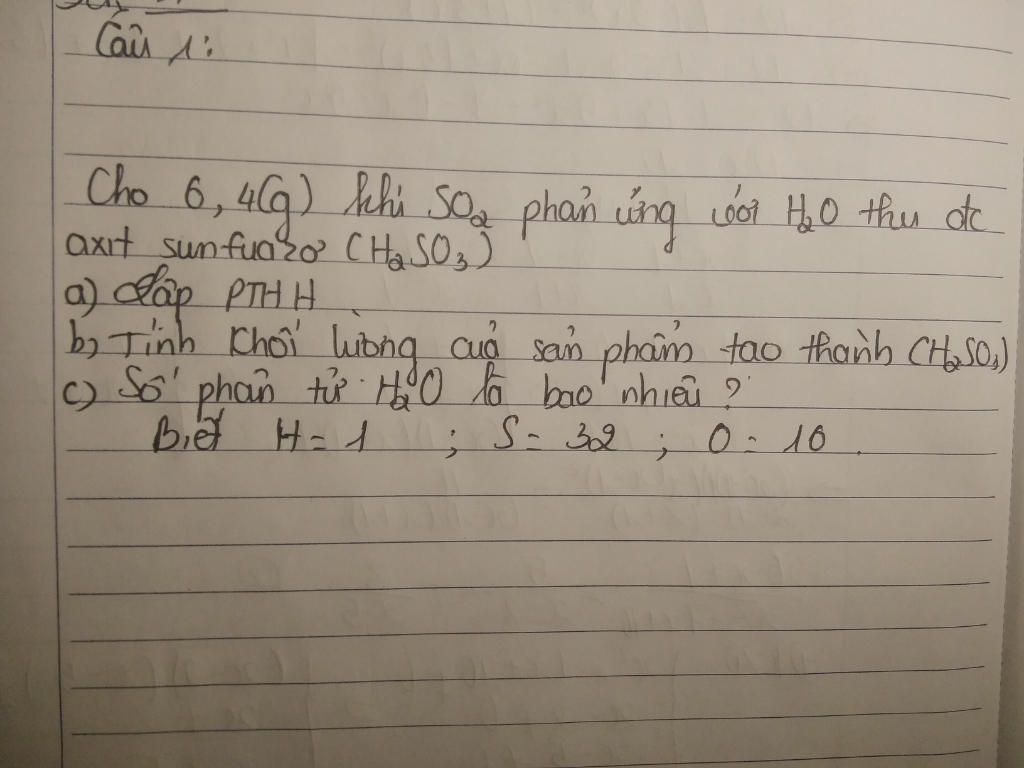 Câu 1:
Cho 6,4(g) khí SO2 phản ứng với H2O thu đc
axit sunfuarơ (H2SO3)
a) Lập PTHH
b) Tính khối lường của sản phẩm tao thành (H2SO3)
c) Số phân tử H2O là bao nhiêu?
Biết H = 1 ; S = 32 ; O = 16.